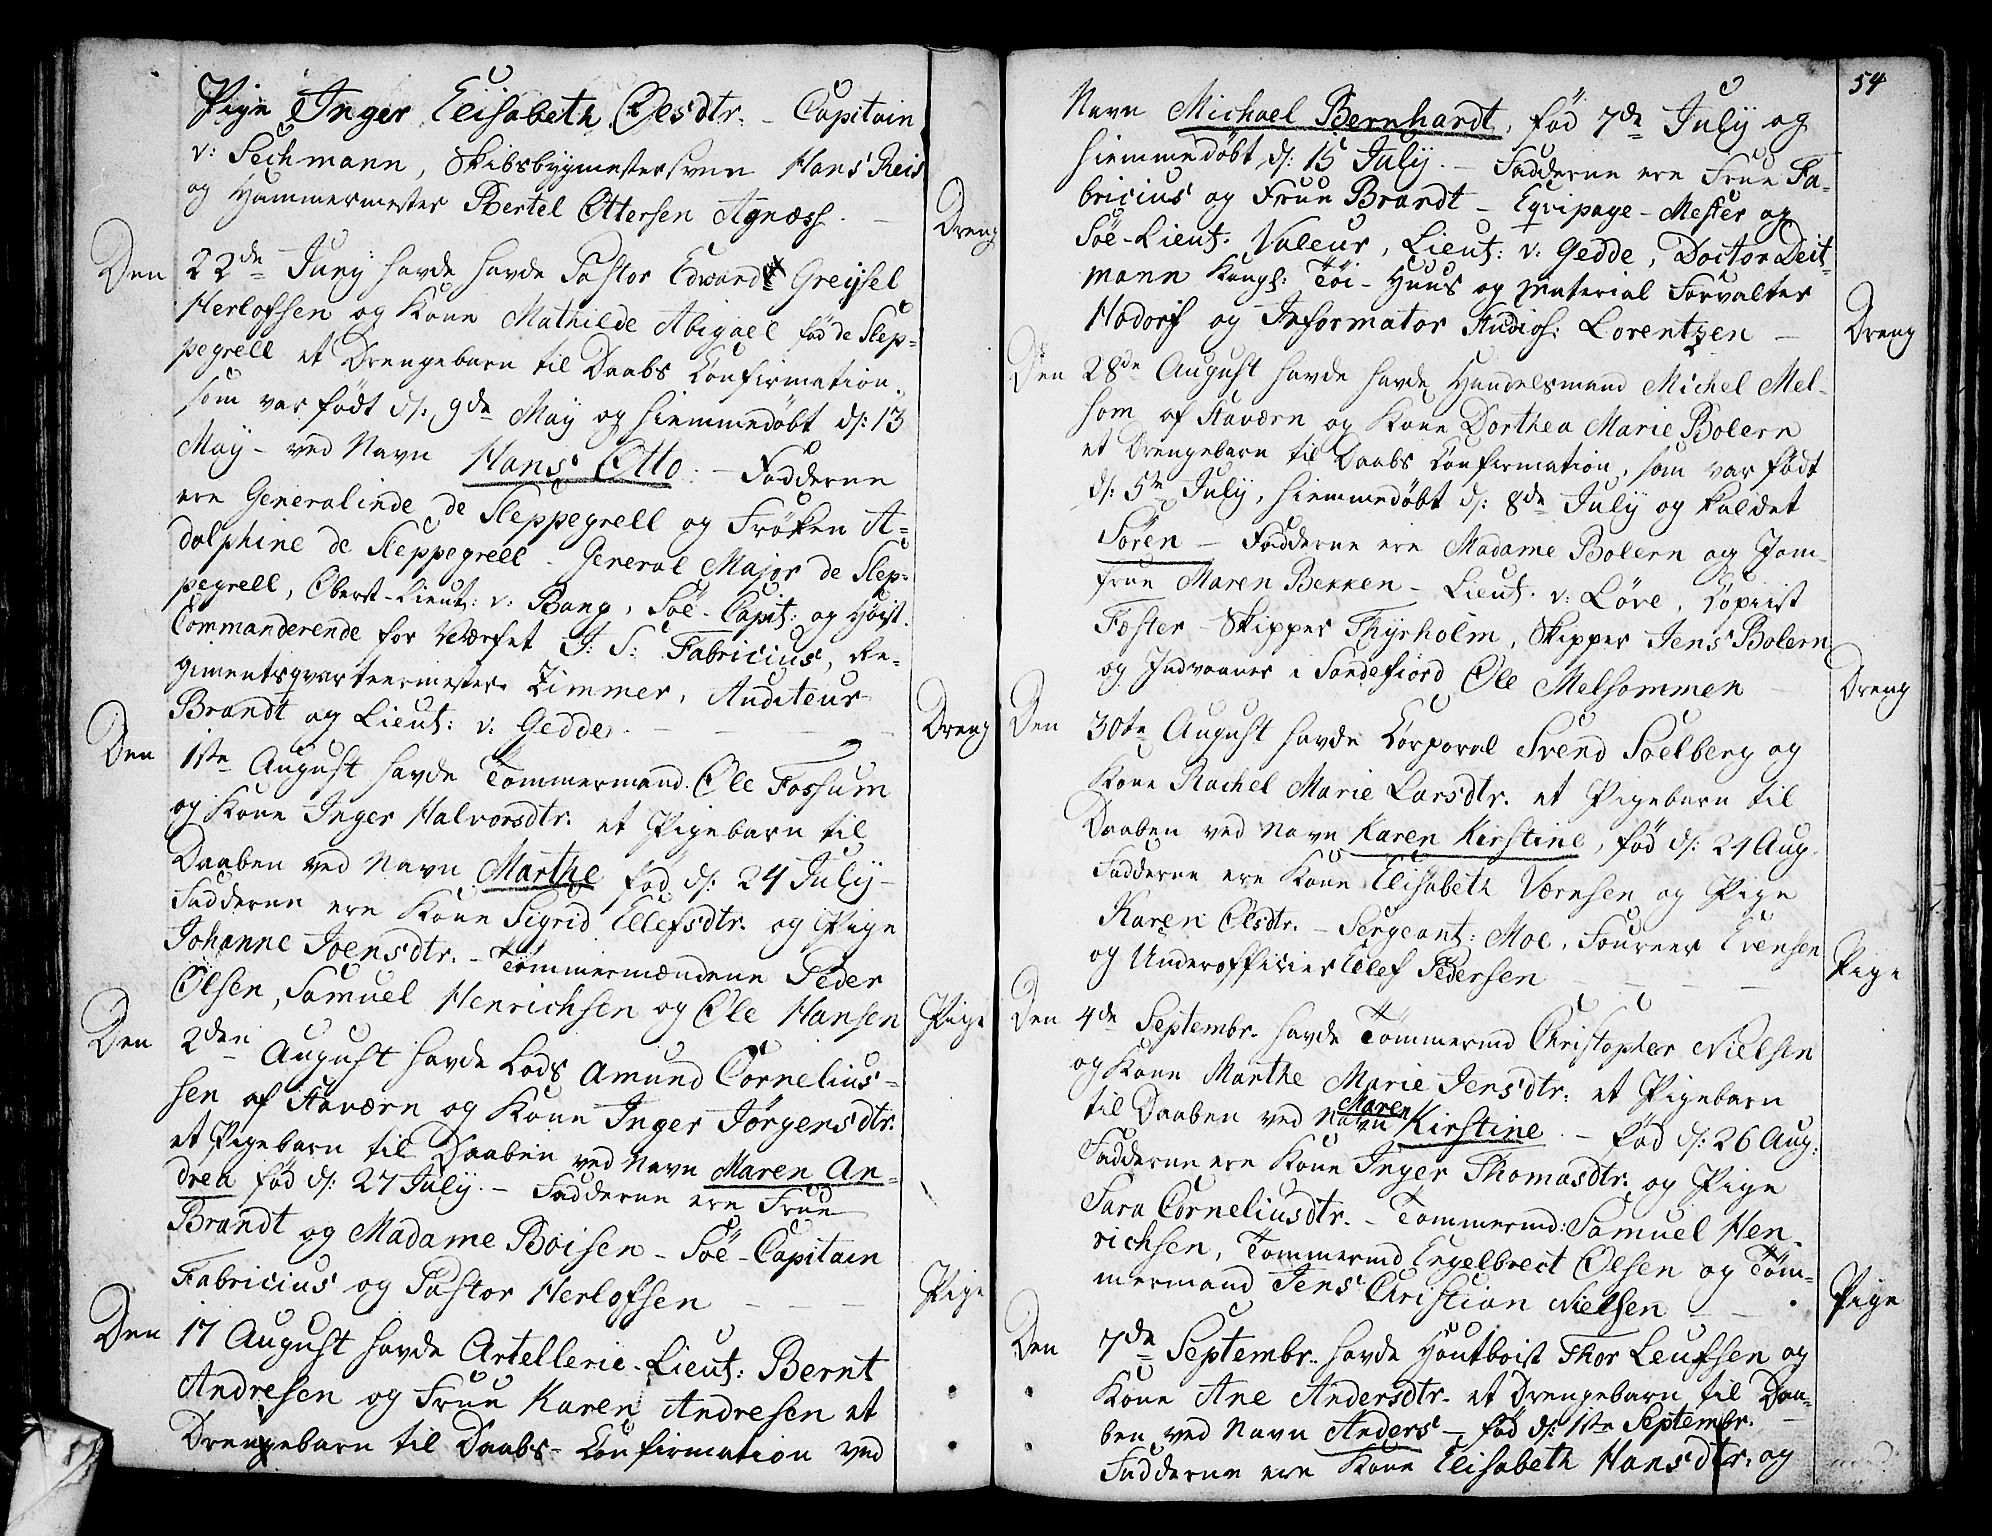 Pige Inger Elisabeth Olsdtr. - Capitain
v: Sechmann, Skibsbygmestersven Hans Reis
og Hammermester Bertel Ottersen Agnæss. -
Dreng
Den 22de Juny havde havde Pastor Edvardt Greysel
Herlofsen og Kone Mathilde Abigael fød de Slep-
pegrell et Drengebarn til Daabs Confirmation,
som var født d: 9de May og hiemmedøbt d: 13
May - ved Navn Hans Otto. - Fadderne
ere Generalinde de Sleppegrell og Frøken A-
dolphine de Sleppegrell - General Major de Slep-
pegrell, Oberst-Lieut: v: Bang, Söe-Capit: og Høist-
Commanderende for Værfet J: S: Fabricius, Re-
gimentsqvarteermester Zimmer, Auditeur
Brandt og Lieut: v: Gedde. -
Dreng
Den 1ste August havde Tömmermand Ole Fossum
og Kone Inger Halvorsdtr. et Pigebarn til
Daaben ved Navn Marthe fød d: 24 July -
Fadderne ere Kone Sigrid Ellefsdtr. og Pige
Johanne Joensdtr. - Tömmermændene Peder
Olsen, Samuel Henrichsen og Ole Hansen
Pige
Den 2den August havde Lods Amund Cornelius-
sen af Staværn og Kone Inger Jørgensdtr.
et Pigebarn til Daaben ved Navn Maren An-
drea fød d: 27 July. - Fadderne ere Frue
Brandt og Madame Boisen - Söe-Capitain
Fabricius og Pastor Herlofsen - - -
Pige
Den 17 August havde Artellerie-Lieut: Bernt
Andresen og Frue Karen Andresen et
Drengebarn til Daabs-Confirmation ved
54
Navn Michael Bernhardt, fød 7de July og
hiemmedøbt d: 15 July. - Fadderne ere Frue Fa-
bricius og Frue Brandt - Eqvipage-Mester og
Söe-Lieut: Valeur, Lieut: v: Gedde, Doctor Deit-
mann Kongl: Töi-Huus og Material Forvalter
Hodorf og Informator Studios: Lorentzen -
Dreng
Den 28de August havde havde Handelsmand Michel Mel-
som af Staværn og Kone Dorthea Marie Bolern
et Drengebarn til Daabs Confirmation, som var født
d: 5te July, hiemmedøbt d: 8de July og kaldet
Sören - Fadderne ere Madame Bolern og Jom-
frue Maren Bekken - Lieut. v: Löve, Copiist
Foster - Skipper Thyrholm, Skipper Jens Bolern
og Indvaaner i Sandefiord Ole Melsommen -
Dreng
Den 30te August havde Corporal Svend Soelberg og
Kone Rachel Marie Larsdtr. et Pigebarn til
Daaben ved Navn Karen Kirstine, fød d: 24 Aug.
Fadderne ere Kone Elisabeth Værnsen og Pige
Karen Olsdtr. - Sergeant: Moe, Foureer Evensen
og Underofficier Ellef Pedersen - - -
Pige
Den 4de Septembr. havde Tömmermd Christopher Nielsen
og Kone Marthe Marie Jensdtr: et Pigebarn
til Daaben ved Navn Maren Kirstine. - fød d: 26 Aug:
Fadderne ere Kone Inger Thomasdtr. og Pige
Sara Corneliusdtr. - Tömmermd: Samuel Hen-
richsen, Tömmermd Engelbrect Olsen og Töm-
mermand Jens Christian Nielsen - -
Pige
Den 7de Septembr. havde Houtboist Thor Leufsen og
Kone Ane Andersdtr. et Drengebarn til Daa-
ben ved Navn Anders - fød d: 1ste Septembr. -
Fadderne ere Kone Elisabeth Hansdtr. og